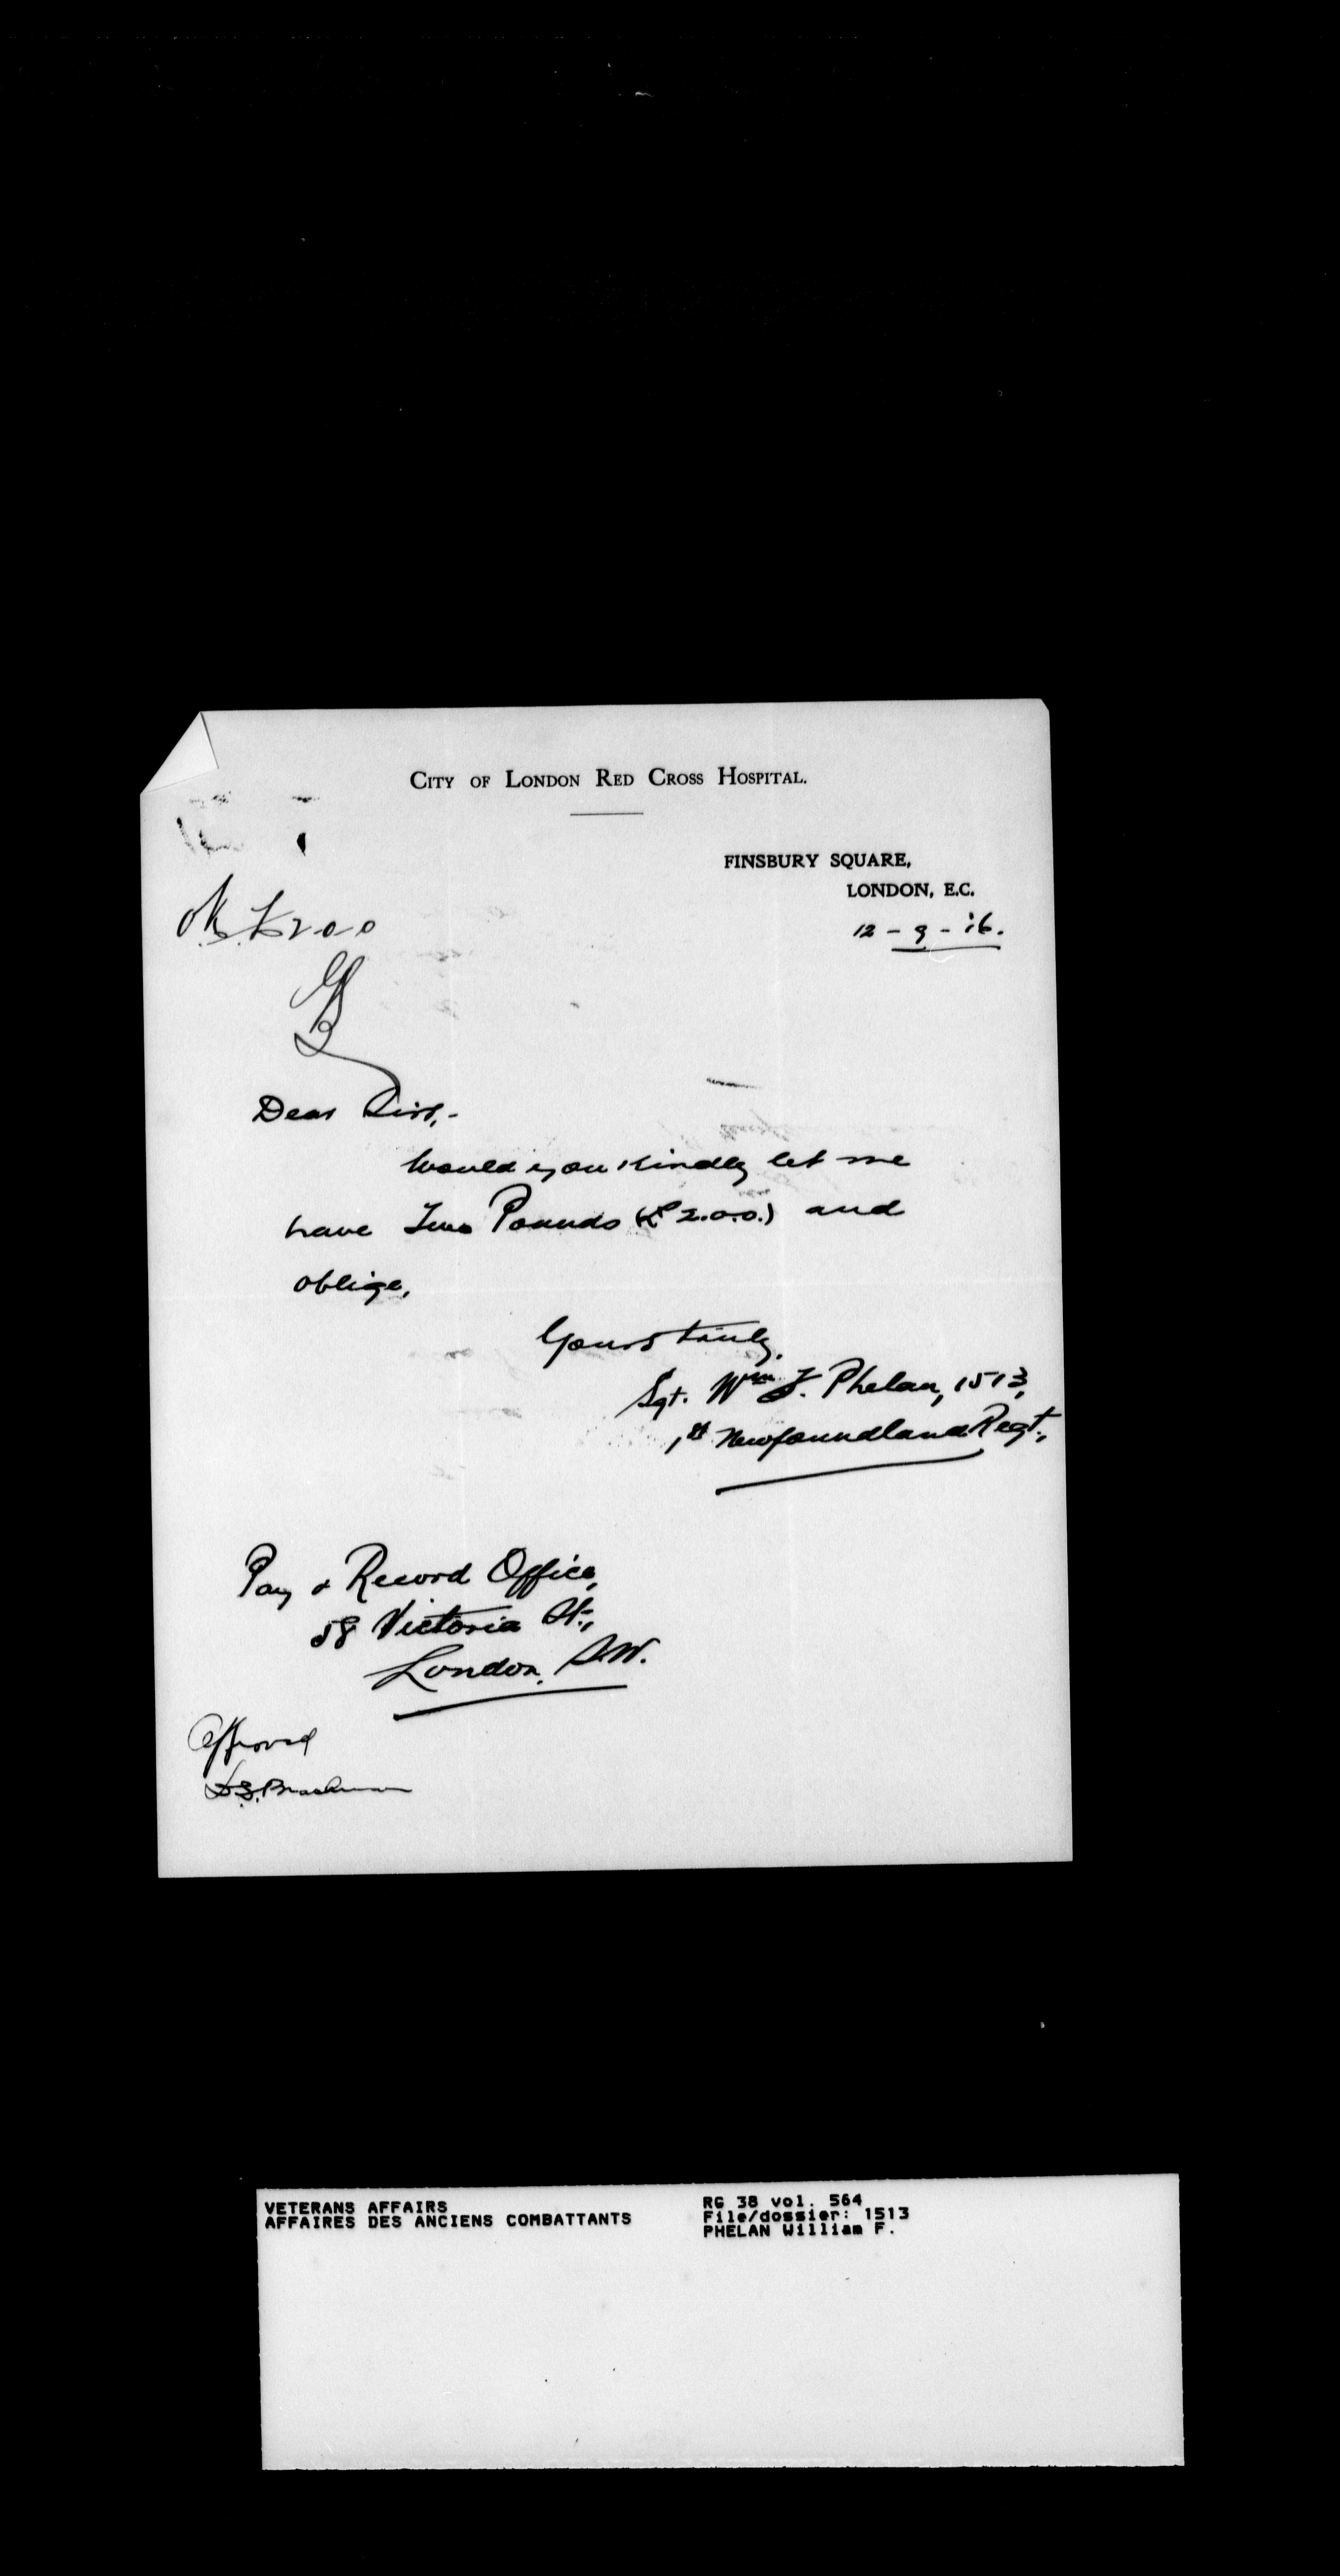 CITY OF LONDON RED CROSS HOSPITAL.
FINSBURY SQUARE,
LONDON, E.C.
12 - 9 - 16.
OK £2-0-0
Dear Sirs,-
Would you kindly let me
have Two Pounds (£2.0.0.) and
oblige,
Yours truly,
Sgt. Wm F. Phelan, 1513,
1st Newfoundland Regt.,
Pay & Record Office,
58 Victoria St.,
London, S.W.
Approved
VETERANS AFFAIRS
AFFAIRES DES ANCIENS COMBATTANTS
RG 38 vol. 564
File/dossier: 1513
PHELAN William F.